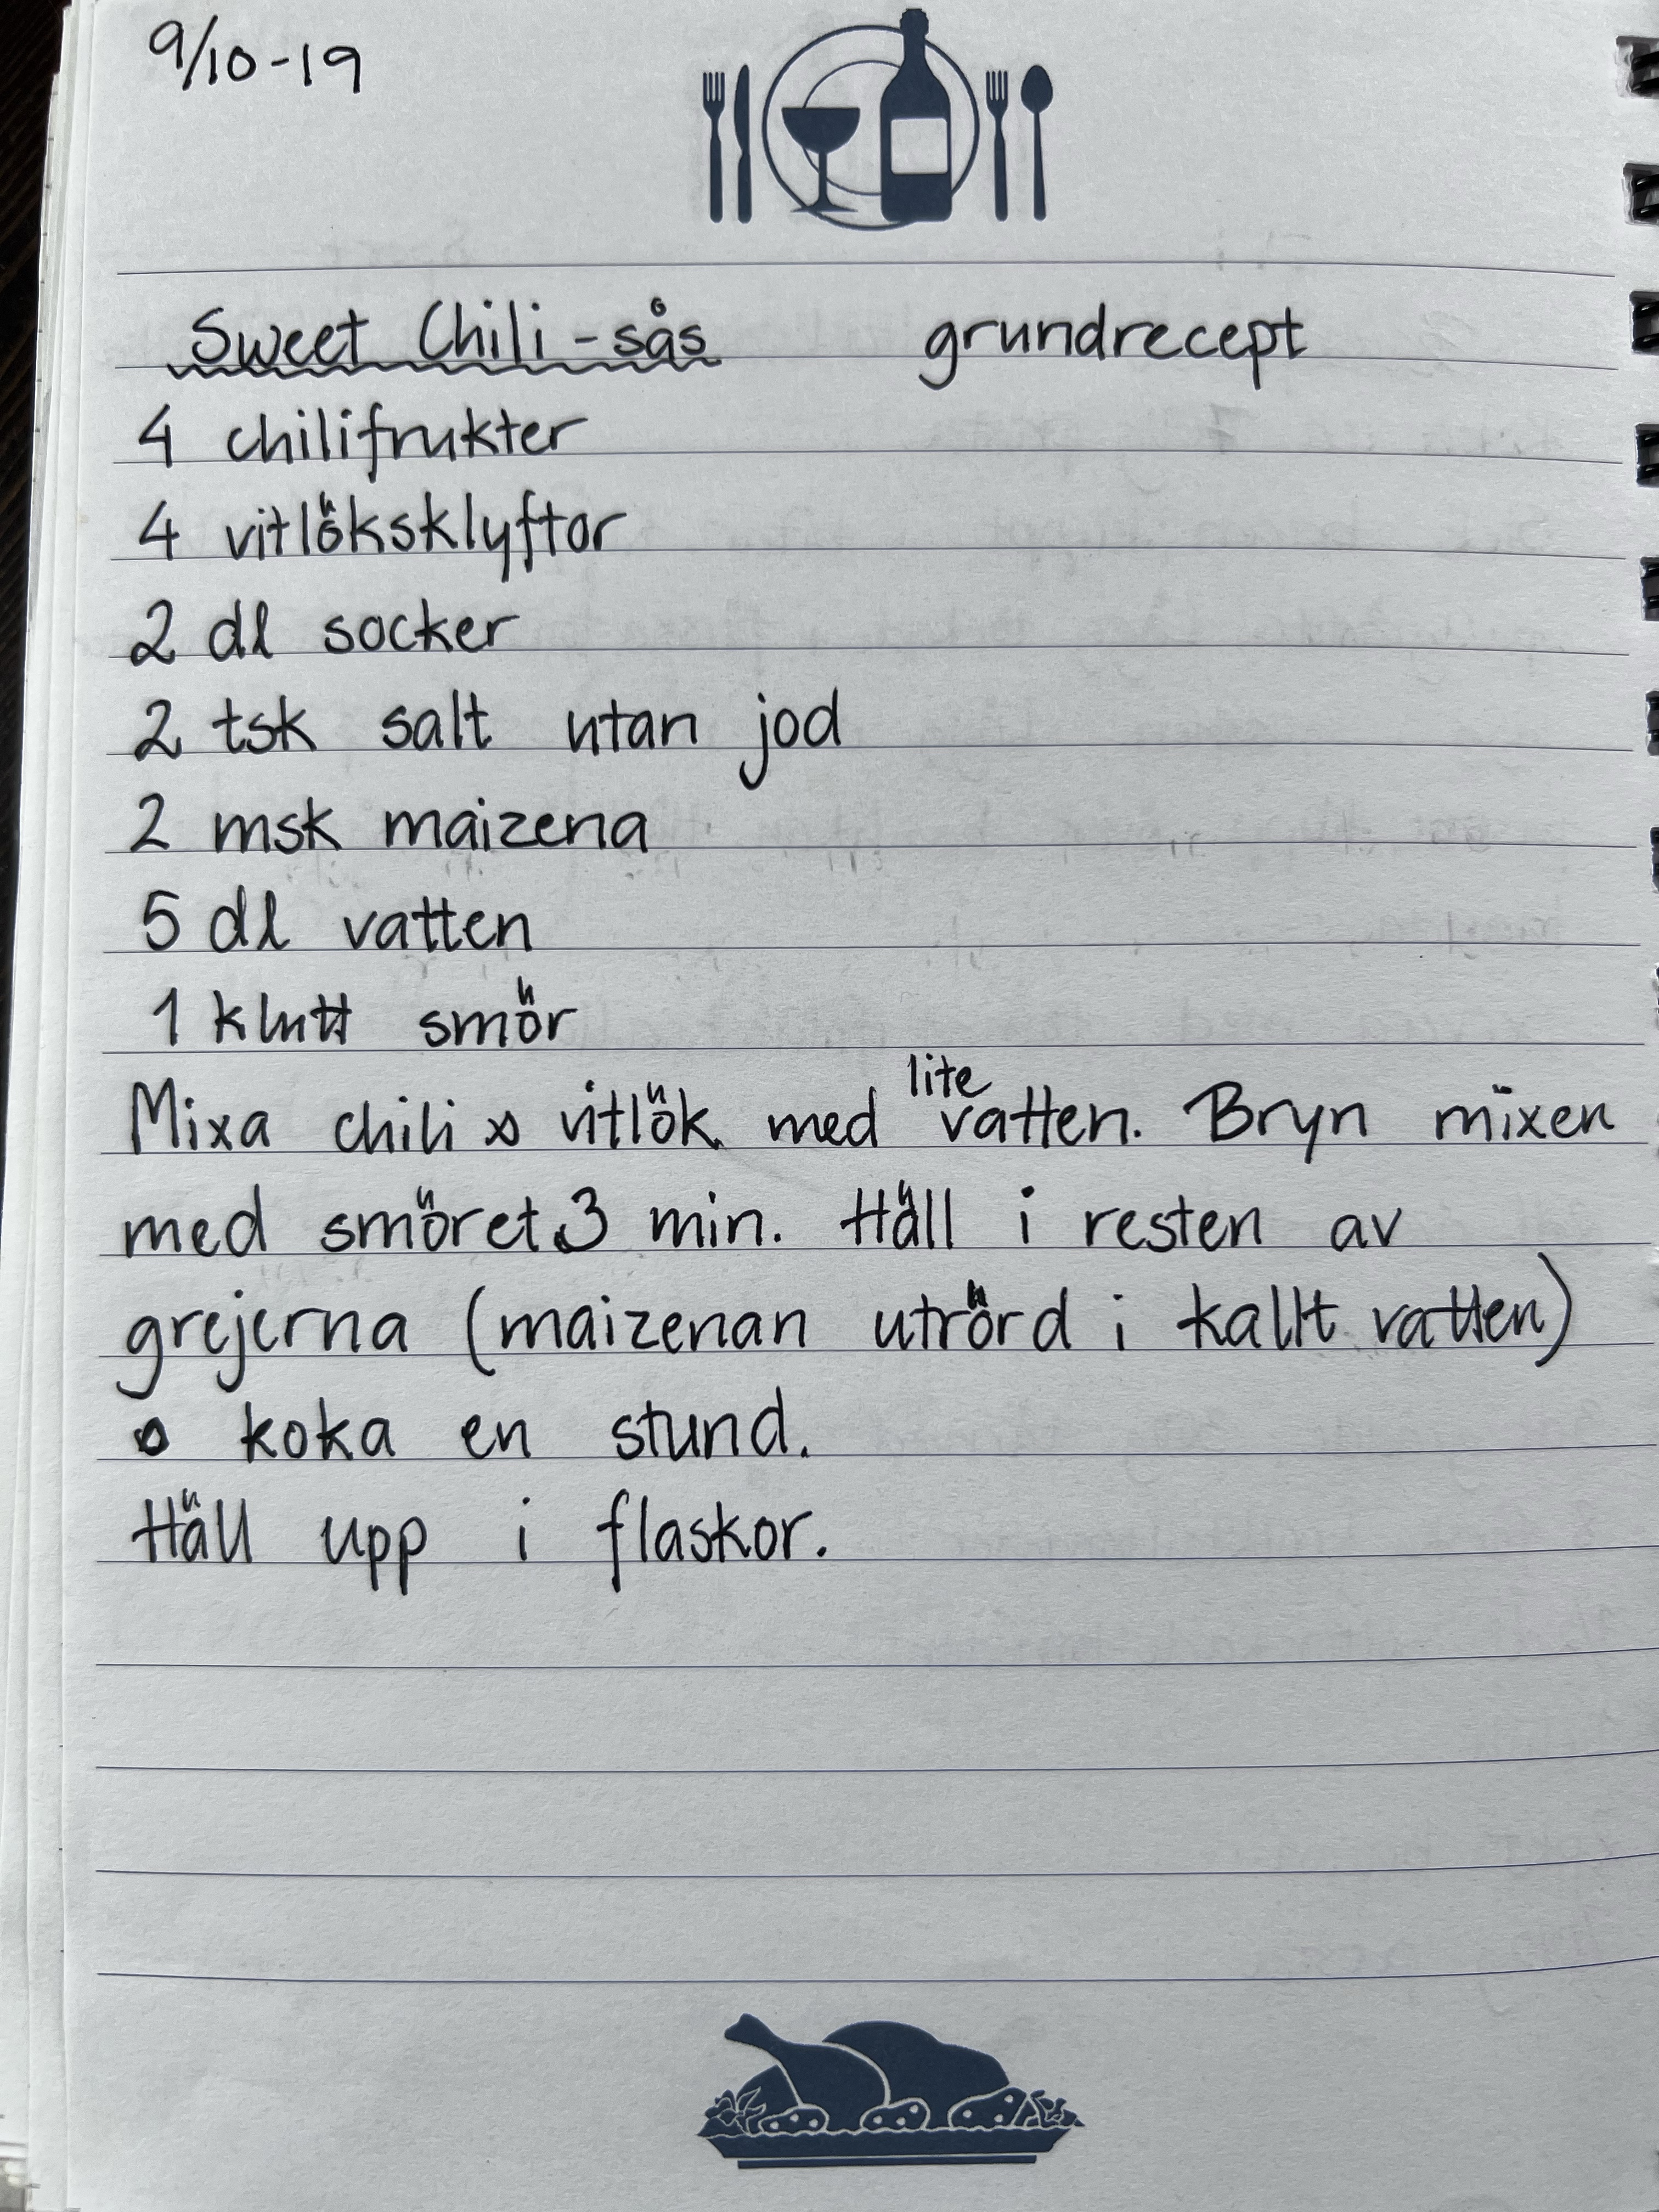 9/10-19
Sweet Chili-sås grundrecept
4 chilifrukter
4 vitlöksklyftor
2 dl socker
2 tsk salt utan jod
2 msk maizena
5 dl vatten
1 klutt smör
Mixa chili o vitlök med lite vatten. Bryn mixen
med smöret 3 min. Häll i resten av
grejerna (maizenan utrörd i kallt vatten)
o koka en stund.
Häll upp i flaskor.